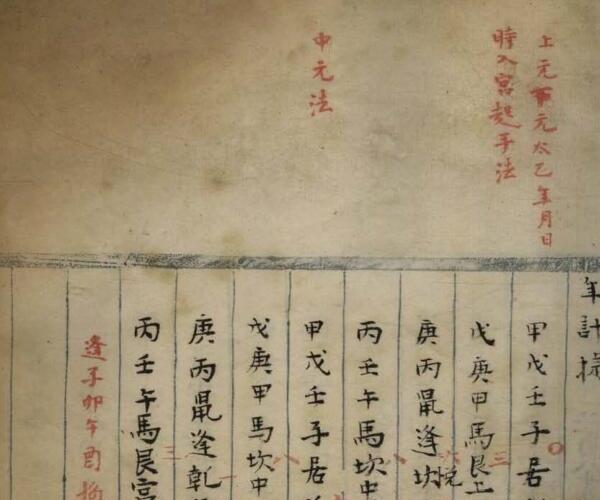 上元下元太乙年月日
時入宮起手法
中元法
年計掾
甲戊壬子居
戊庚甲馬艮上
三
庚丙鼠逢坎
六
兌
丙壬午馬坎中
八
甲戊壬子居
戊庚甲馬坎中
八
庚丙鼠逢乾
一
丙壬午馬艮宮
三
逢子卯午酉